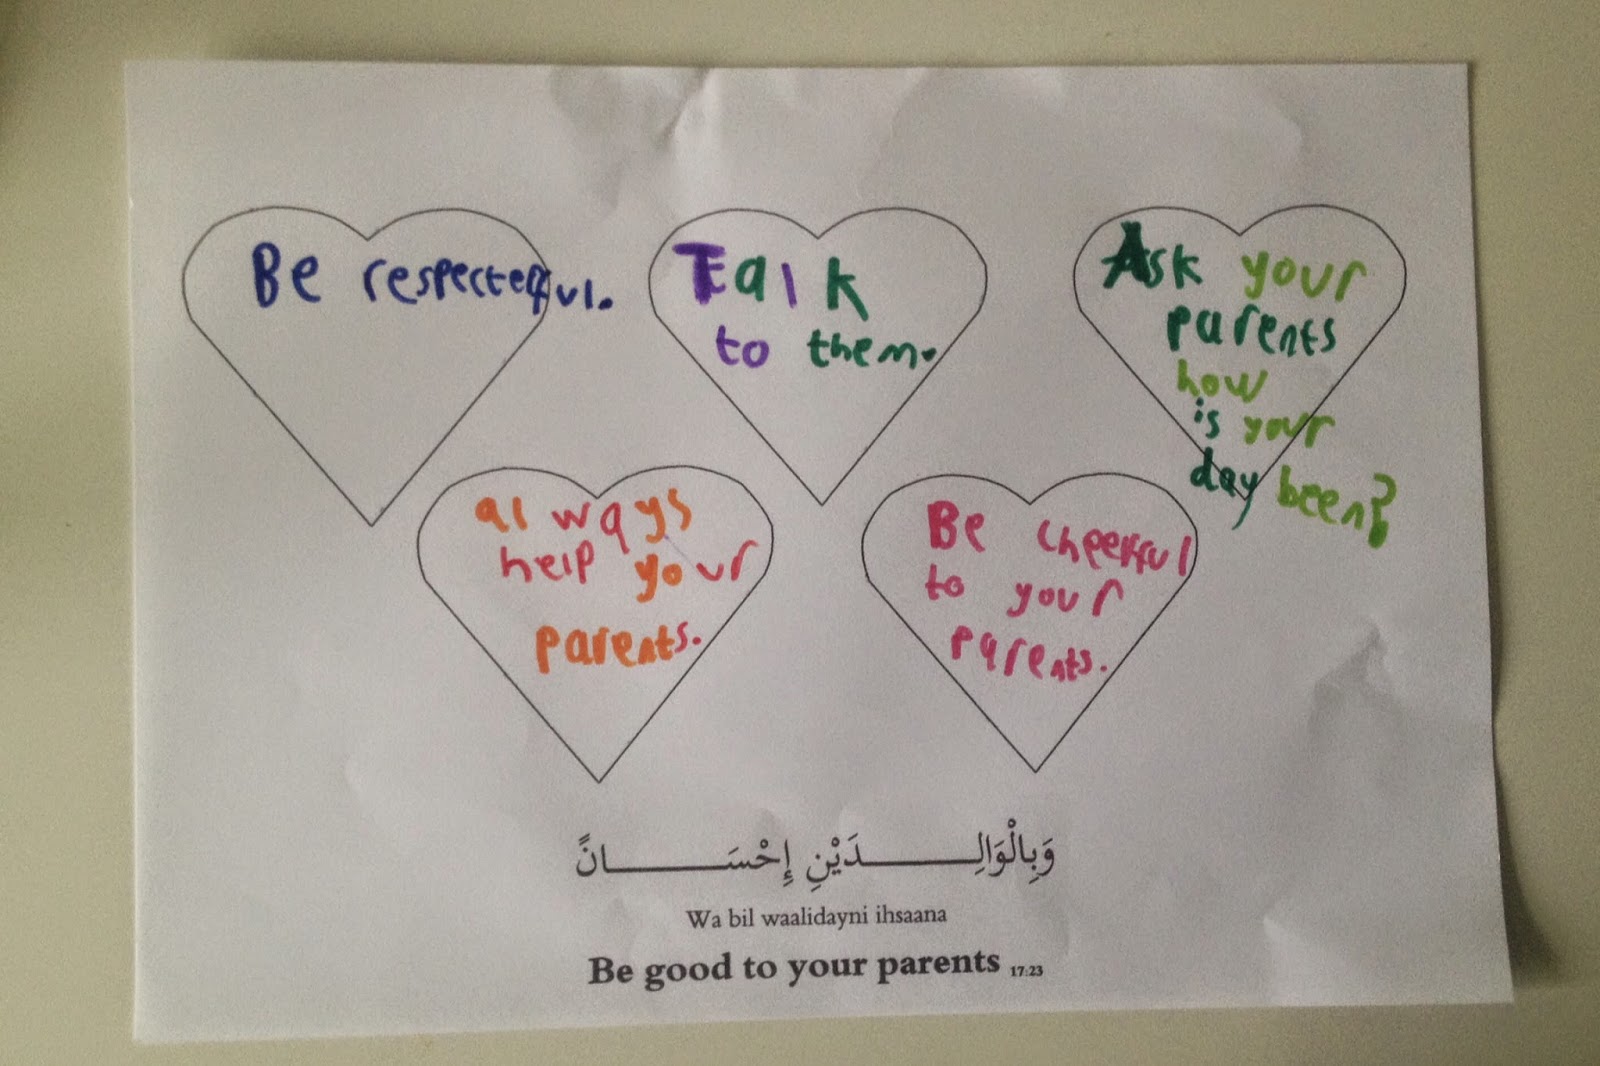 Be respecteful.
Talk
to them.
Ask your
parents
how
is your
day been?
always
help your
parents.
Be cheerful
to your
parents.
وَبِالْوَالِـــــــدَيْنِ إِحْسَـــــــانًا
Wa bil waalidayni ihsaana
Be good to your parents 17:23